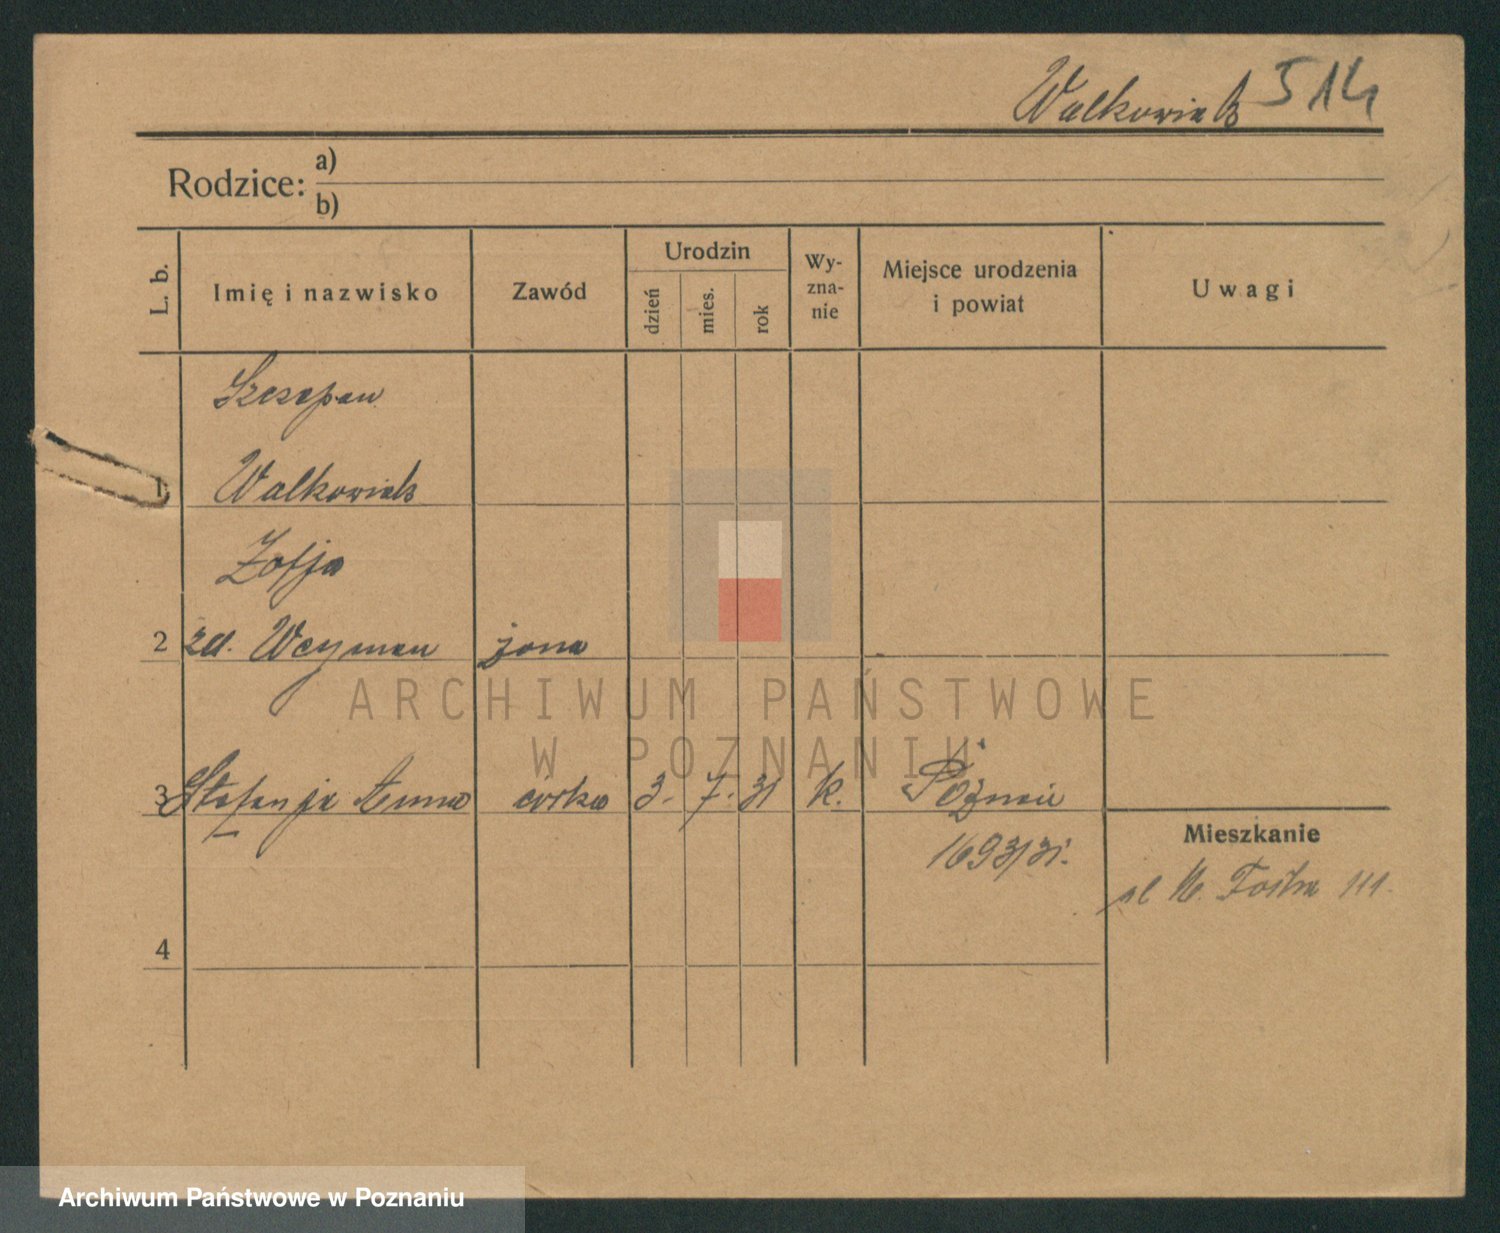 Walkowiak 514
Rodzice: a)
b)
L. b.
Imię i nazwisko
Zawód
Urodzin
dzień
mies.
rok
Wy-
zna-
nie
Miejsce urodzenia
i powiat
Uwagi
Szczepan
1 Walkowiak
Zofja
2 zd. Weyman żona
3 Stefanja Anna córka 3. 7. 31 k. Poznań
1693/31.
Mieszkanie
111.
4
ARCHIWUM PAŃSTWOWE
W POZNANIU
Archiwum Państwowe w Poznaniu